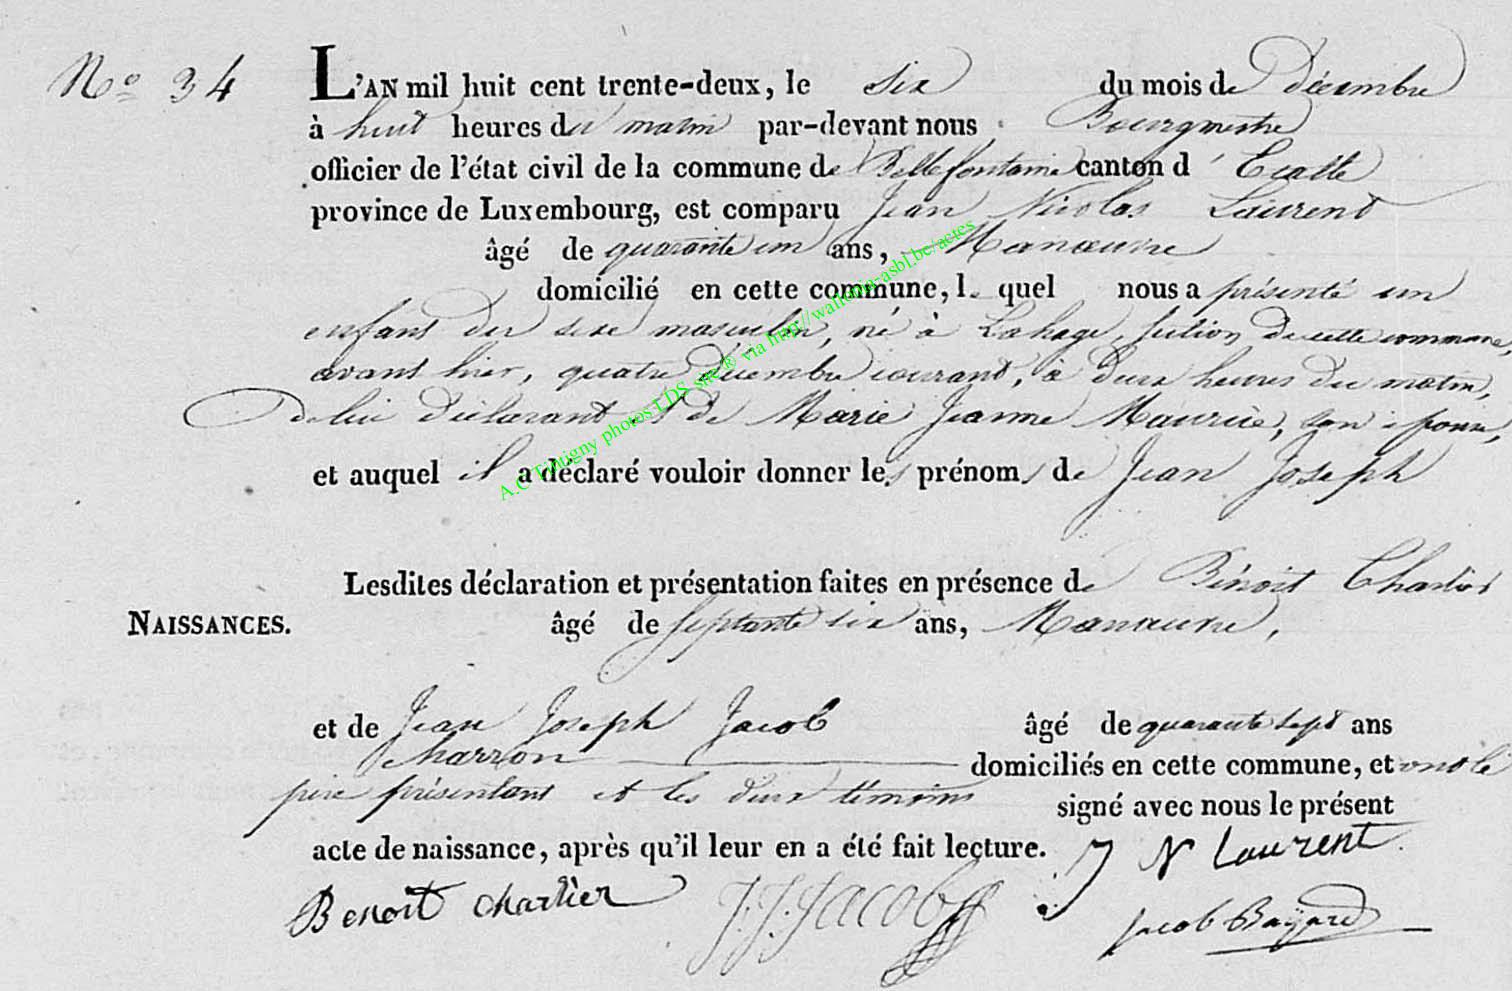 N° 34
L'AN mil huit cent trente-deux, le six du mois de Décembre
à huit heures du matin par-devant nous Bourgmestre
officier de l'état civil de la commune de Bellefontaine canton d' Etalle
province de Luxembourg, est comparu Jean Nicolas Laurent
âgé de quarante un ans, Manœuvre
domicilié en cette commune, le quel nous a présenté un
enfant du sexe masculin, né à Lahage, section de cette commune,
avant hier, quatre décembre courant, à deux heures du matin,
de lui déclarant et de Marie Jeanne Maurice, son épouse,
et auquel il a déclaré vouloir donner les prénoms de Jean Joseph
Lesdites déclaration et présentation faites en présence de Bénoit Charlier
NAISSANCES. âgé de septante six ans, Manœuvre,
et de Jean Joseph Jacob âgé de quarante sept ans
charron domiciliés en cette commune, et ont le
père présentant et les deux témoins signé avec nous le présent
acte de naissance, après qu'il leur en a été fait lecture. J N Laurent
Benoit charlier J. J. Jacob Jacob Bayard
A.C Tintigny photos LDS site® via http://wallonia-asbl.be/actes